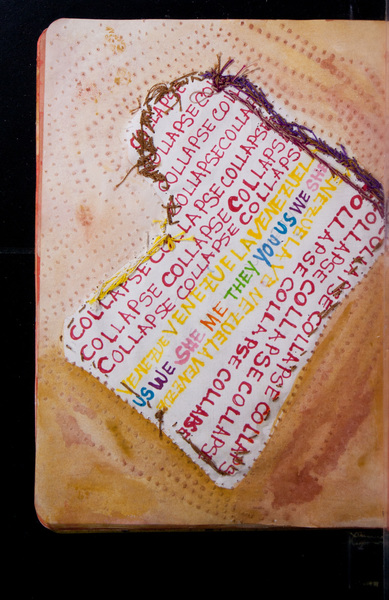 COLLAPS
COLLAPSE CO
COLLAPSE COL
COLLAPSE COLLA
COLLAPSE COLLAPSE COLLAPS
COLLAPSE COLLAPSE COLLAPS
COLLAPSE COLLAPSE COLLAPS
VENEZUE VENEZUELA VENEZUELA
US WE SHE ME THEY YOU US WE SHE
VENEZUELA VENEZUELA VENEZUELA
COLLAPSE COLLAPSE COLLAPSE
COLLAPSE COLLAPSE COLLAPSE
COLLAPSE COLLAPSE